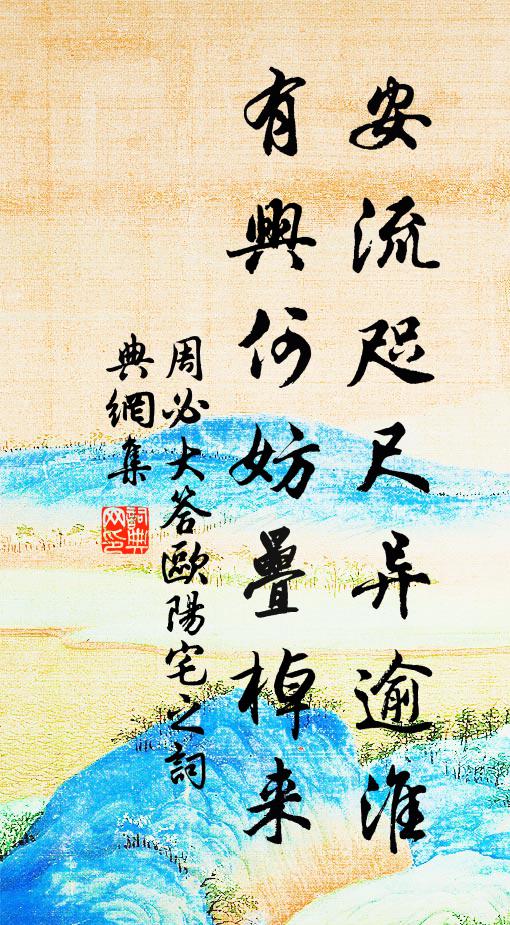 安流咫尺异逾淮
有興何妨疊棹来
周必大答歐陽宅之詞
典網集
詞典
网印